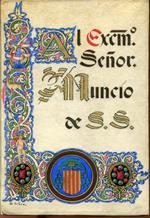 Al Excmo.
Señor.
Nuncio
de S.S.